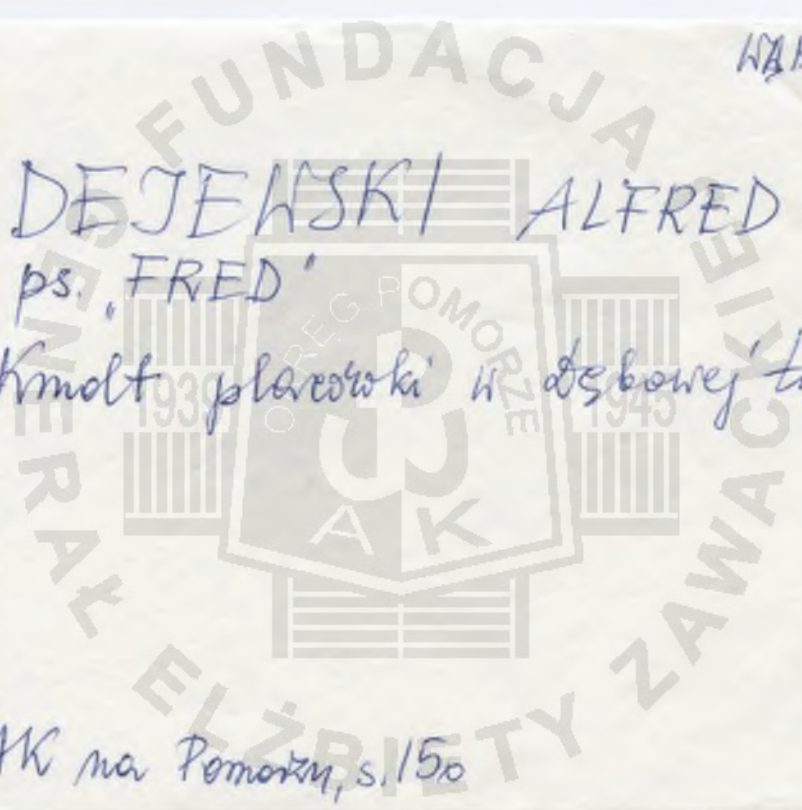 WĄB
DEJEWSKI ALFRED
ps. „FRED"
Kmdt placówki w Dębowej Łą
AK na Pomorzu, s. 150
FUNDACJA GENERAŁ ELŻBIETY ZAWACKIEJ
OKRĘG POMORZE
1939 1945
AK